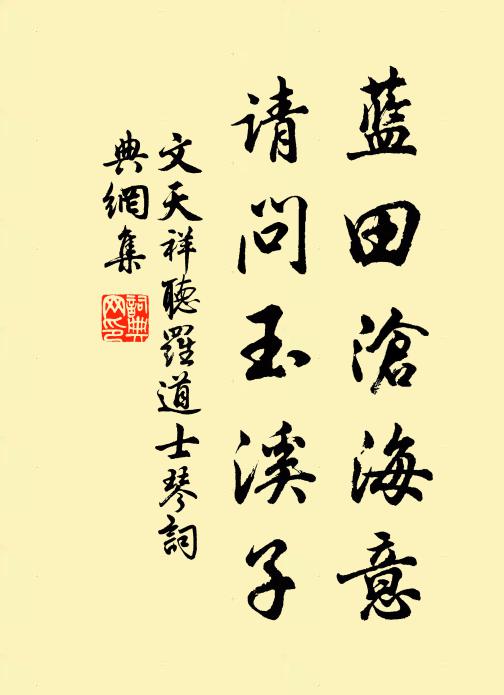 藍田滄海意
请問玉溪子
文天祥聽羅道士琴詞
典網集
詞典网印